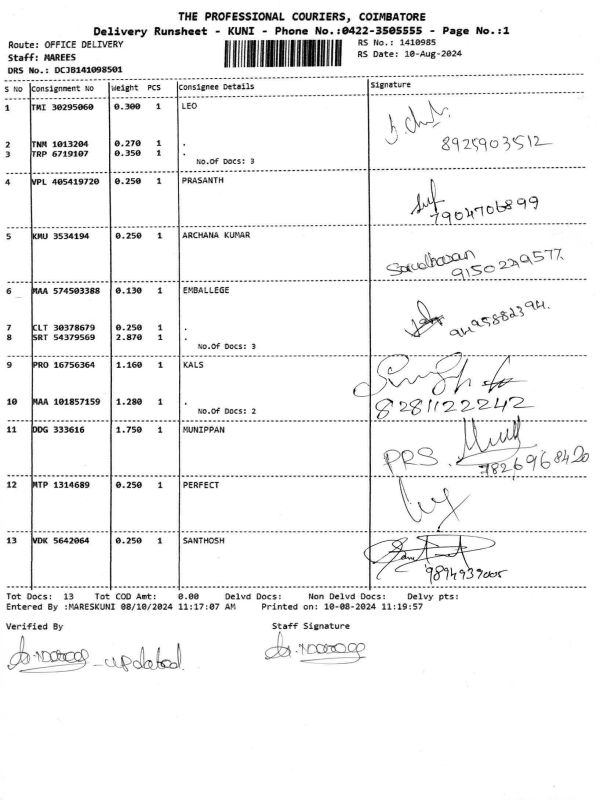 THE PROFESSIONAL COURIERS, COIMBATORE
Delivery Runsheet - KUNI - Phone No.:0422-3505555 - Page No.:1
Route: OFFICE DELIVERY RS No.: 1410985
Staff: MAREES RS Date: 10-Aug-2024
DRS No.: DCJB141098501
S No Consignment No Weight PCS Consignee Details Signature
1 TMI 30295060 0.300 1 LEO
2 TNM 1013204 0.270 1 . 8925903512
3 TRP 6719107 0.350 1 .
No.Of Docs: 3
4 VPL 405419720 0.250 1 PRASANTH
7904706899
5 KMU 3534194 0.250 1 ARCHANA KUMAR
9150229577.
6 MAA 574503388 0.130 1 EMBALLEGE
9495882394.
7 CLT 30378679 0.250 1 .
8 SRT 54379569 2.870 1 .
No.Of Docs: 3
9 PRO 16756364 1.160 1 KALS
10 MAA 101857159 1.280 1 . 8281122242
No.Of Docs: 2
11 DDG 333616 1.750 1 MUNIPPAN
PRS. 7826968420
12 MTP 1314689 0.250 1 PERFECT
13 VDK 5642064 0.250 1 SANTHOSH
Tot Docs: 13 Tot COD Amt: 0.00 Delvd Docs: Non Delvd Docs: Delvy pts:
Entered By :MARESKUNI 08/10/2024 11:17:07 AM Printed on: 10-08-2024 11:19:57
Verified By Staff Signature
- updated.